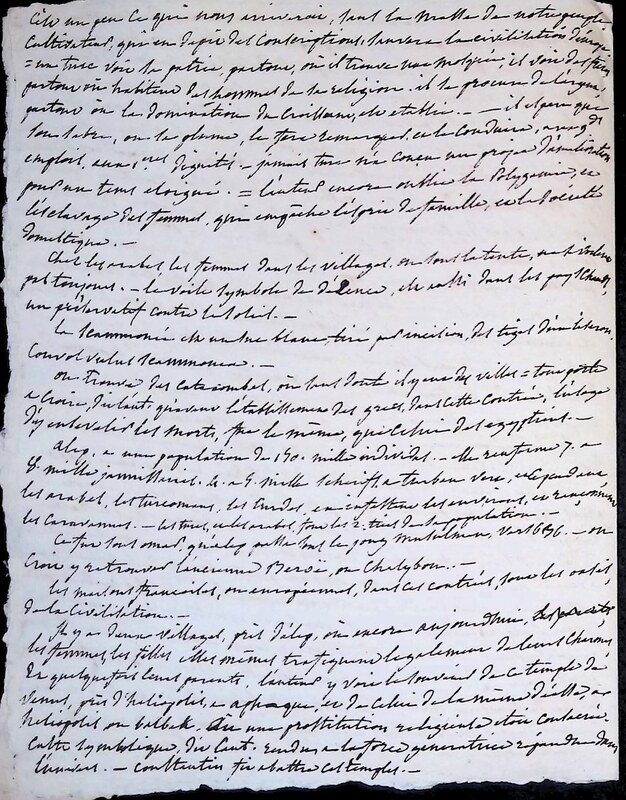 un peu ce qui nous arriverait, sans la masse de notre peuple
cultivateur, qui en dépit des conscriptions, sauvera la civilisation
= un turc voit sa patrie, partout, où il trouve une mosquée, il voit des frères
partout où habitent des hommes de sa religion. il se procure
partout où la domination du croissant, est établie. — il espère que
son sabre, ou sa plume, le fera remarquer, et le conduira, aux gds
emplois, aux dignités. — jamais turc n'a conçu un projet d'amélioration
pour un tems éloigné. = l'auteur encore oublie la Polygamie, et
l'esclavage des femmes, qui empêche l'esprit de famille, et la société
domestique. —
Chez les arabes, les femmes dans les villages, ou sous la tente, ne se voilent
pas toujours. — le voile symbole de décence, est aussi dans les pays chauds,
un préservatif contre le soleil. —
la scammonée est un suc blanc tiré par incision, des tiges
Convolvulus scammonea. —
on trouve des catacombes, où sans doute il y eut des villes = tout porte
à croire, dit l'aut. qu'avant l'établissement des grecs, dans cette contrée, l'usage
d'y ensevelir les morts, fut le même, que celui des egyptiens. —
alep, a une population de 150. mille individus. — elle renferme 7. a
8. mille jannissaires. 4. a 5. mille scheriffs, a turban verd, cependant
les arabes, les turcomans, les Curdes, en infestent les environs, et rançonnent
les caravannes. — les turcs, et les arabes, font les 2. tiers de la population. —
Ce fut sous omar, qu'alep passa sous le joug musulman, vers 1636. — on
croit y retrouver l'ancienne Beroë, ou Chalybon. —
les maisons francaises, ou européennes, dans ces contrées, sont les oasis,
de la civilisation. —
Il y a deux villages, près d'alep, où encore aujourdhui,
les femmes, les filles elles mêmes trafiquent légalement de leurs charmes
Et quelquefois leurs parents. l'auteur y voit le souvenir de ce temple de
Venus, près d'heliopolis, a aphaque, et de celui de la même déesse, a
heliopolis ou balbek. où une prostitution religieuse etoit consacrée.
Culte symbolique, dit l'aut. rendu a la force generatrice répandue dans
l'univers. — constantin fit abattre ces temples. —